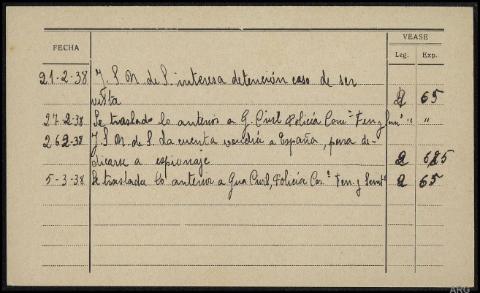 FECHA
VEASE
Leg. Exp.
21-2-38 J. S. M. de S. interesa detención caso de ser
vista 2 65
27-2-38 Se traslada lo anterior a G. Civil Policía Com.ª Fen y " "
26-2-38 J. S. M. de S. da cuenta vendrá a España, para de-
dicarse a espionaje 2 65
5-3-38 Se traslada lo anterior a Gua Civil, Policía Com.ª Fen. y 2 65
ARG